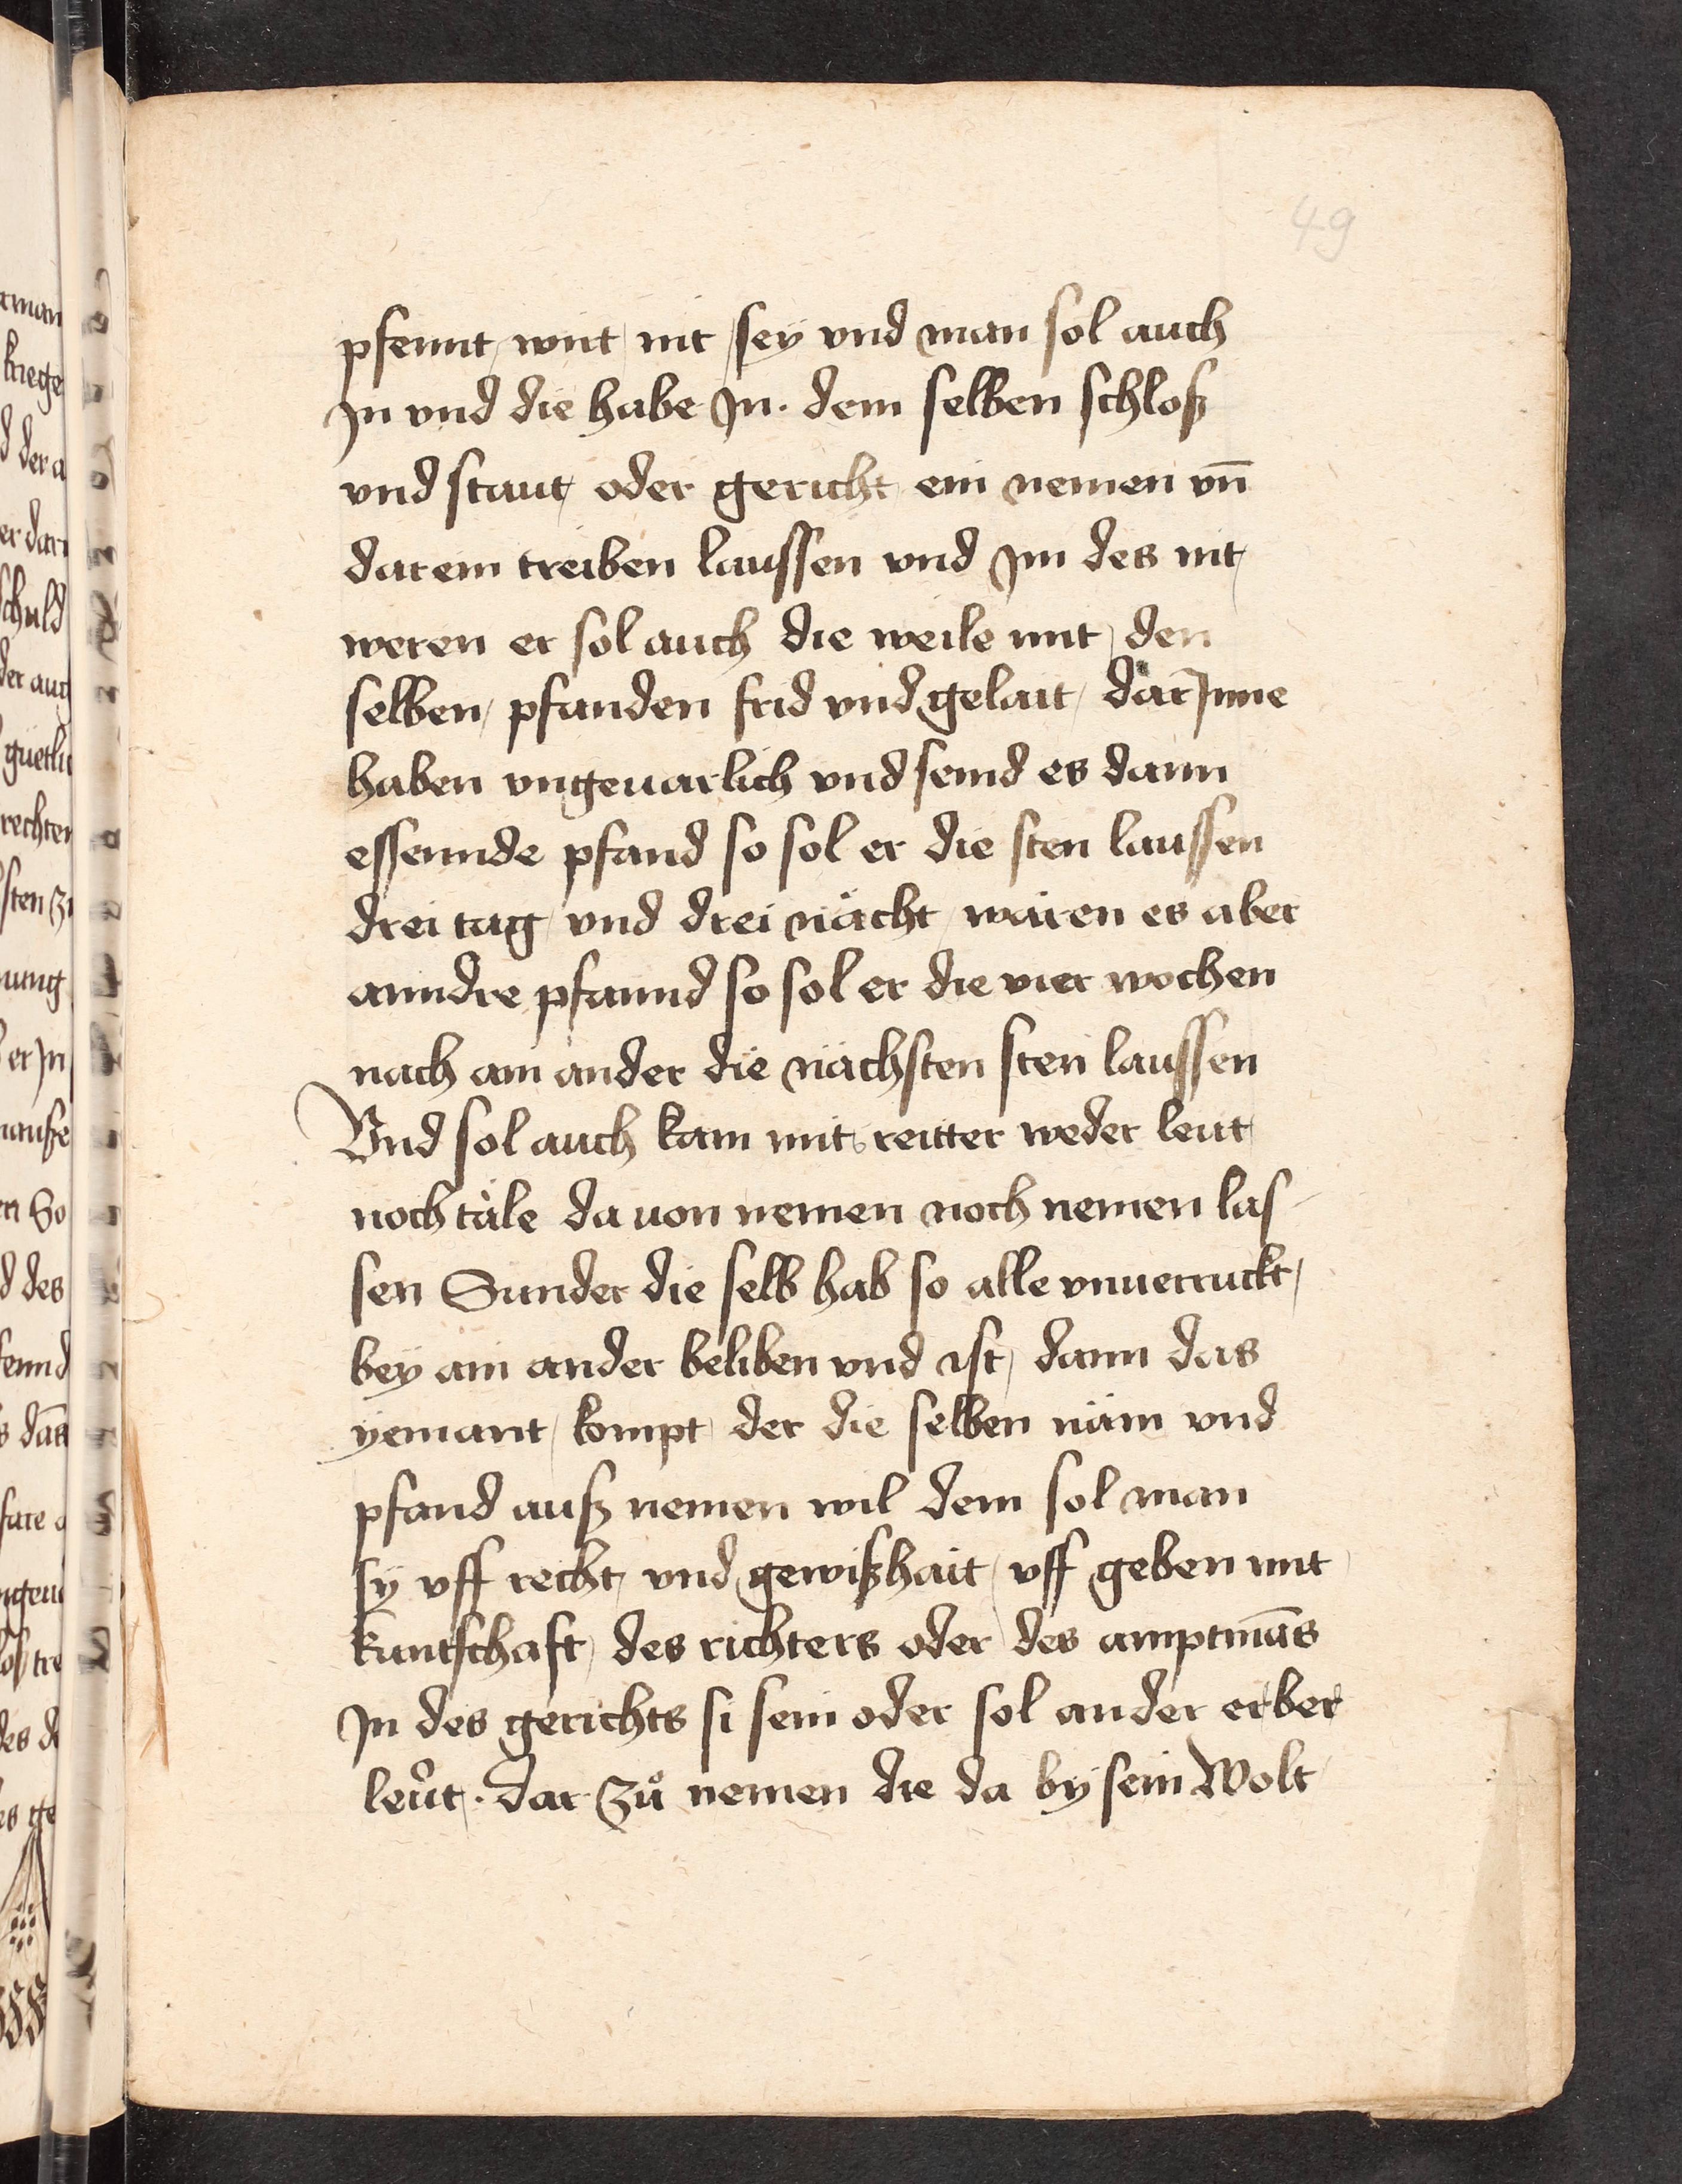 49
pfennt wirt nit sey vnd man sol auch
Jn vnd die habe Jn. dem selben schloß
vnd staut oder gericht ein nemen vn̄
darein treiben laussen vnd Jm des nit
weren er sol auch die weile mit den
selben pfanden frid vnd gelait darJnne
haben vngeuarlich vnd seind es dann
essennde pfand so sol er die sten laussen
drei tag vnd drei nächt wären es aber
anndre pfannd so sol er die vier wochen
nach ain ander die nächsten sten laussen
Vnd sol auch kain mit reitter weder leut
noch täle da uon nemen noch nemen las
sen Sunder die selb hab so alle vnuerruckt
bey ain ander beliben vnd ist dann das
yemant kompt der die selben näm vnd
pfand auß nemen wil dem sol man
sÿ vff recht vnd gewißhait vff geben mit
kuntschaft des richters oder des amptmās
Jn des gerichts si sein oder sol ander erber
leu̇t. dar zů nemen die da by sein Wolt